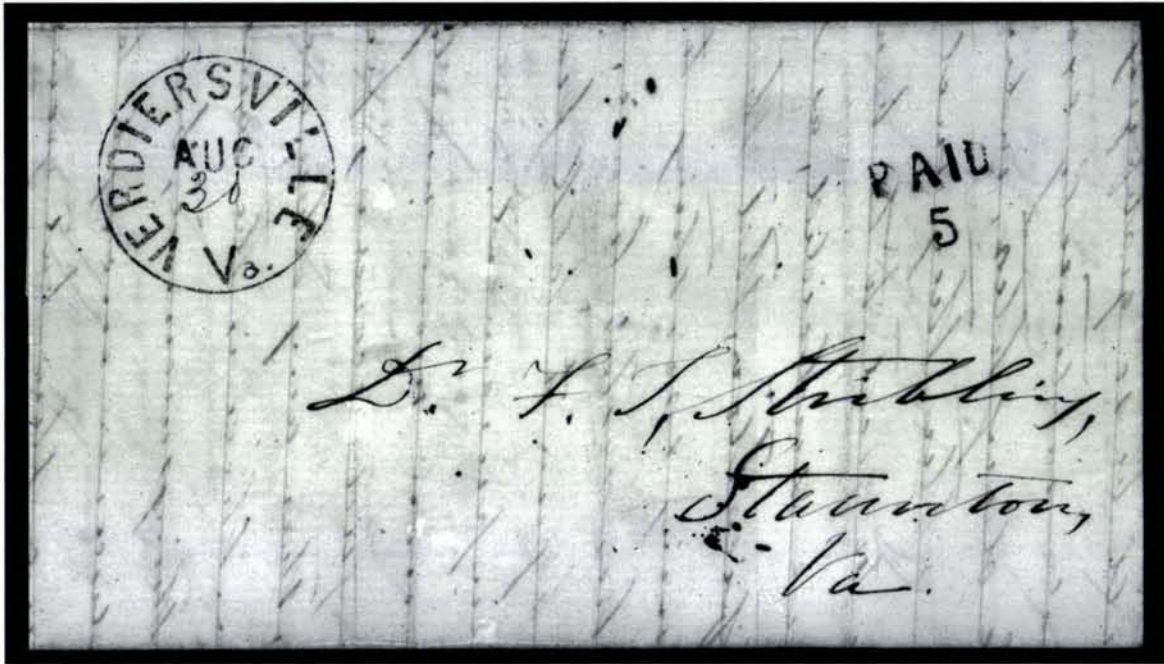 VERDIERSVILLE
AUG
Va.
PAID
5
Dr. F. T. Stribling,
Staunton,
Va.